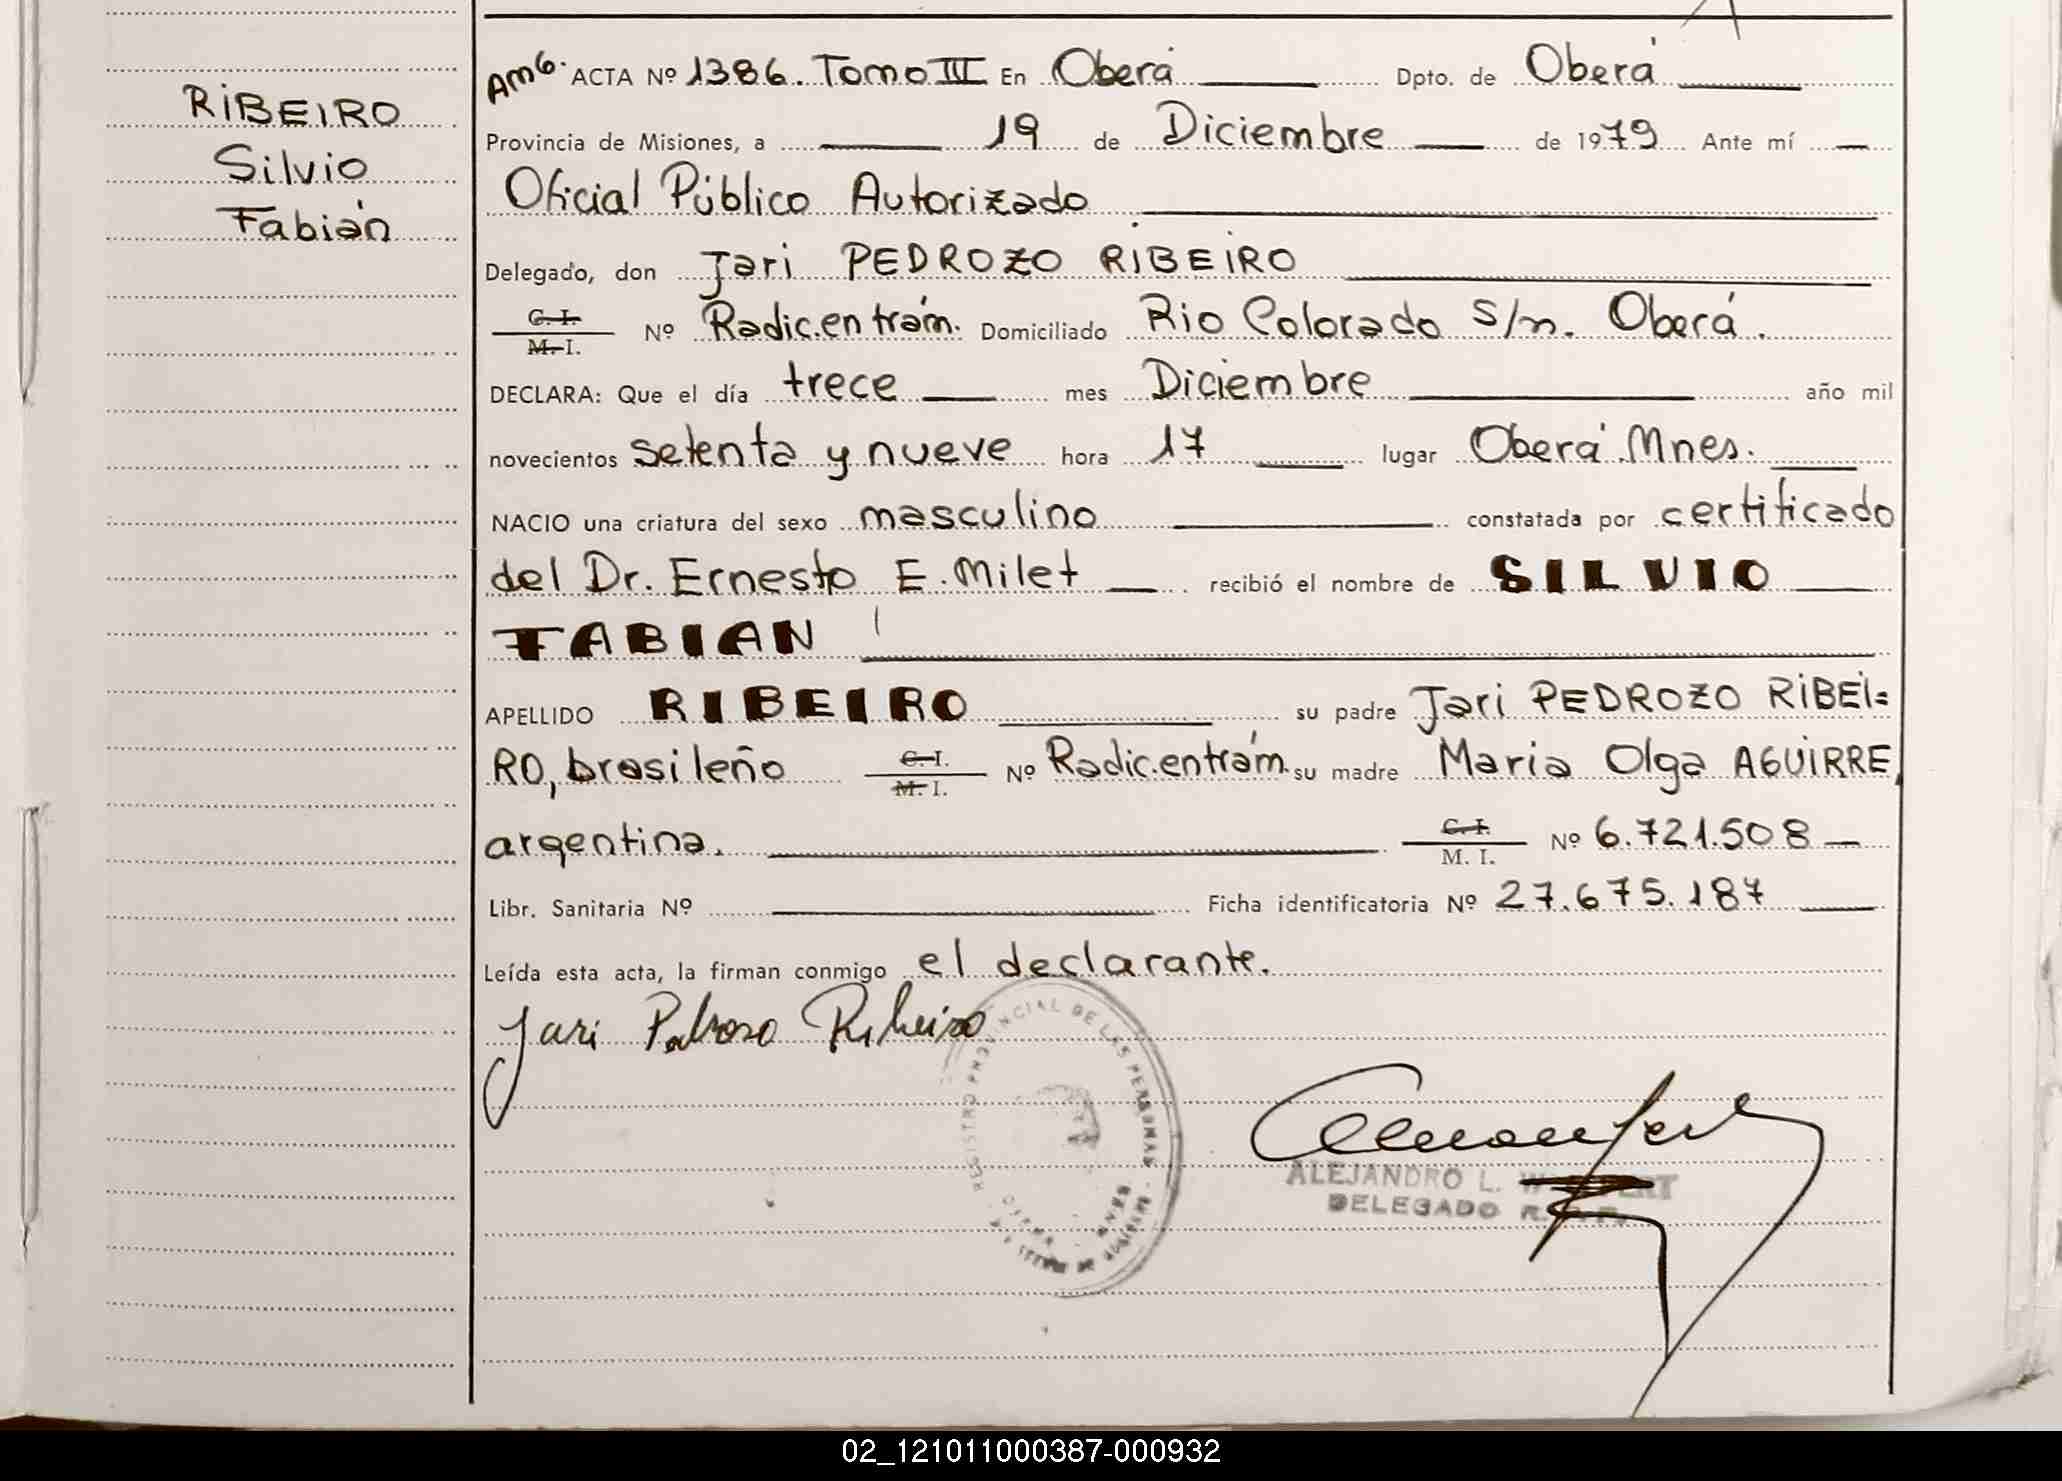 RIBEIRO
Silvio
Fabián
Am6. ACTA Nº 1386. Tomo III En Oberá Dpto. de Oberá
Provincia de Misiones, a 19 de Diciembre de 1979 Ante mí
Oficial Público Autorizado
Delegado, don Jari PEDROZO RIBEIRO
C. I.
M. I. Nº Radic.en trám. Domiciliado Rio Colorado S/n. Oberá.
DECLARA: Que el día trece mes Diciembre año mil
novecientos setenta y nueve hora 17 lugar Oberá Mnes.
NACIO una criatura del sexo masculino constatada por certificado
del Dr. Ernesto E. Milet recibió el nombre de SILVIO
FABIAN
APELLIDO RIBEIRO su padre Jari PEDROZO RIBEI=
RO, brasileño C. I. M. I. Nº Radic.en trám. su madre Maria Olga AGUIRRE,
argentina. C. I. M. I. Nº 6.721.508
Libr. Sanitaria Nº Ficha identificatoria Nº 27.675.187
Leída esta acta, la firman conmigo el declarante.
Jari Pedroso Ribeiro
REGISTRO PROVINCIAL DE LAS PERSONAS
ALEJANDRO L.
DELEGADO
02_121011000387-000932